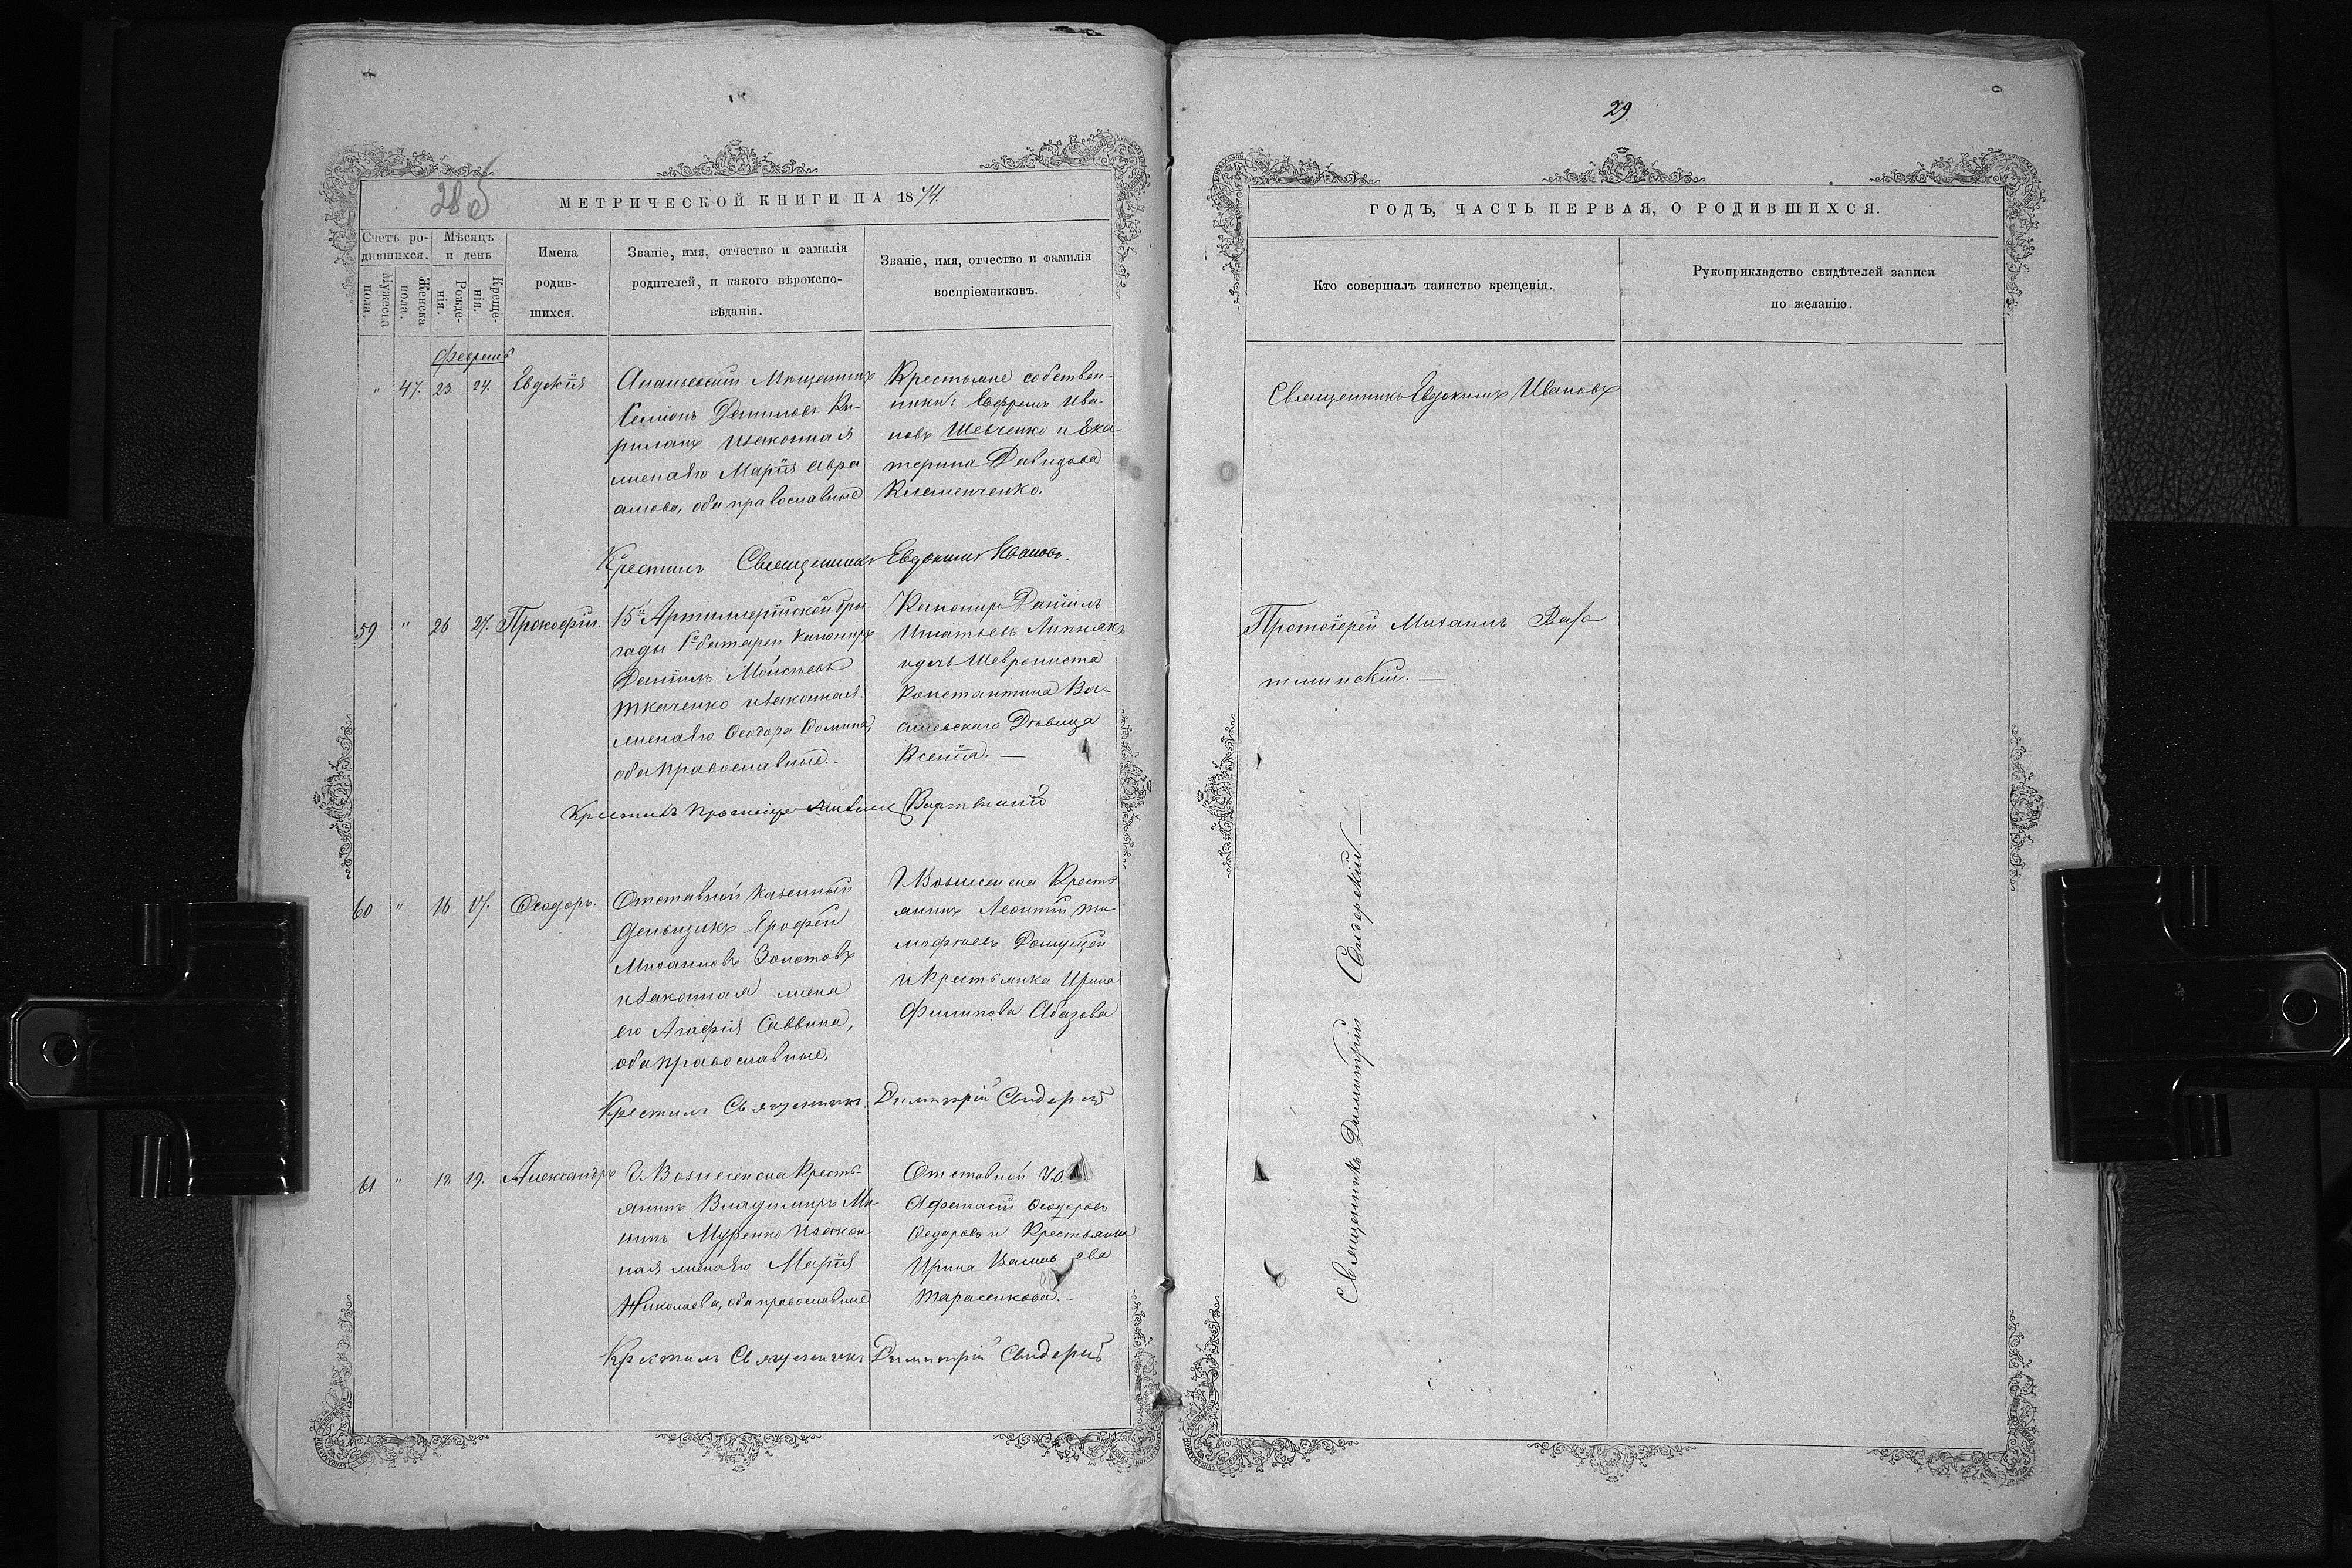 28 об
МЕТРИЧЕСКОЙ КНИГИ НА 1874.
Счетъ ро-
дившихся.
Мужеска
пола.
Женска
пола.
Мѣсяцъ
и день
Рожде-
нія.
Креще-
нія.
Имена
родив-
шихся.
Званіе, имя, отчество и фамилія
родителей, и какого вѣроиспо-
вѣданія.
Званіе, имя, отчество и фамилія
воспріемниковъ.
Февраль
" 47. 23. 24. Евдокія
Ананьевскій Мѣщанинъ
Семіонъ Даниловъ Ки-
рилацъ и законная
жена его Марія Авра
амова, оба православные
Крестьяне собствен-
ники: Ефремъ Ива-
новъ Шевченко и Ека
терина Давидова
Клеменченко.
Крестилъ Священникъ Евдокимъ Ивановъ.
59 " 26 27. Прокофій.
15й Артиллерійской Бри-
гады 1й батареи канониръ
Даніилъ Моисѣевъ
Ткаченко и законная
жена его Ѳеодора Ѳомина,
оба православные.-
Канониръ Даніилъ
Игнатьевъ Липнякъ
и дочь Шеврониста
Константина Ва-
силевскаго Дѣвица
Ксенія. —
Крестилъ Протоіерей Михаилъ
60 " 16 17. Ѳеодоръ.
Отставной казенный
деньщикъ Ерофей
Михаиловъ Золотовъ
и законная жена
его Агафія Саввина,
оба православные,
г. Вознесенска Кресть
янинъ Леонтій Ти
мофѣевъ
и Крестьянка Ирина
Филипова Абазова
Крестилъ Священникъ Димитрій
61 " 18 19. Александръ
г. Вознесенска Кресть-
янинъ Владимиръ Ми-
нинъ Муренко и закон
ная жена его Марія
Николаева, оба православные
Отставной У.О.
Афанасій Ѳеодоровъ
Ѳедоровъ и Крестьянка
Ирина Васильева
Тарасенкова.-
Крестилъ Священникъ Димитрій
29.
ГОДЪ, ЧАСТЬ ПЕРВАЯ, О РОДИВШИХСЯ.
Кто совершалъ таинство крещенія.
Рукоприкладство свидѣтелей записи
по желанію.
Священникъ Евдокимъ Ивановъ
Протоіерей Михаилъ
Священникъ Димитрій